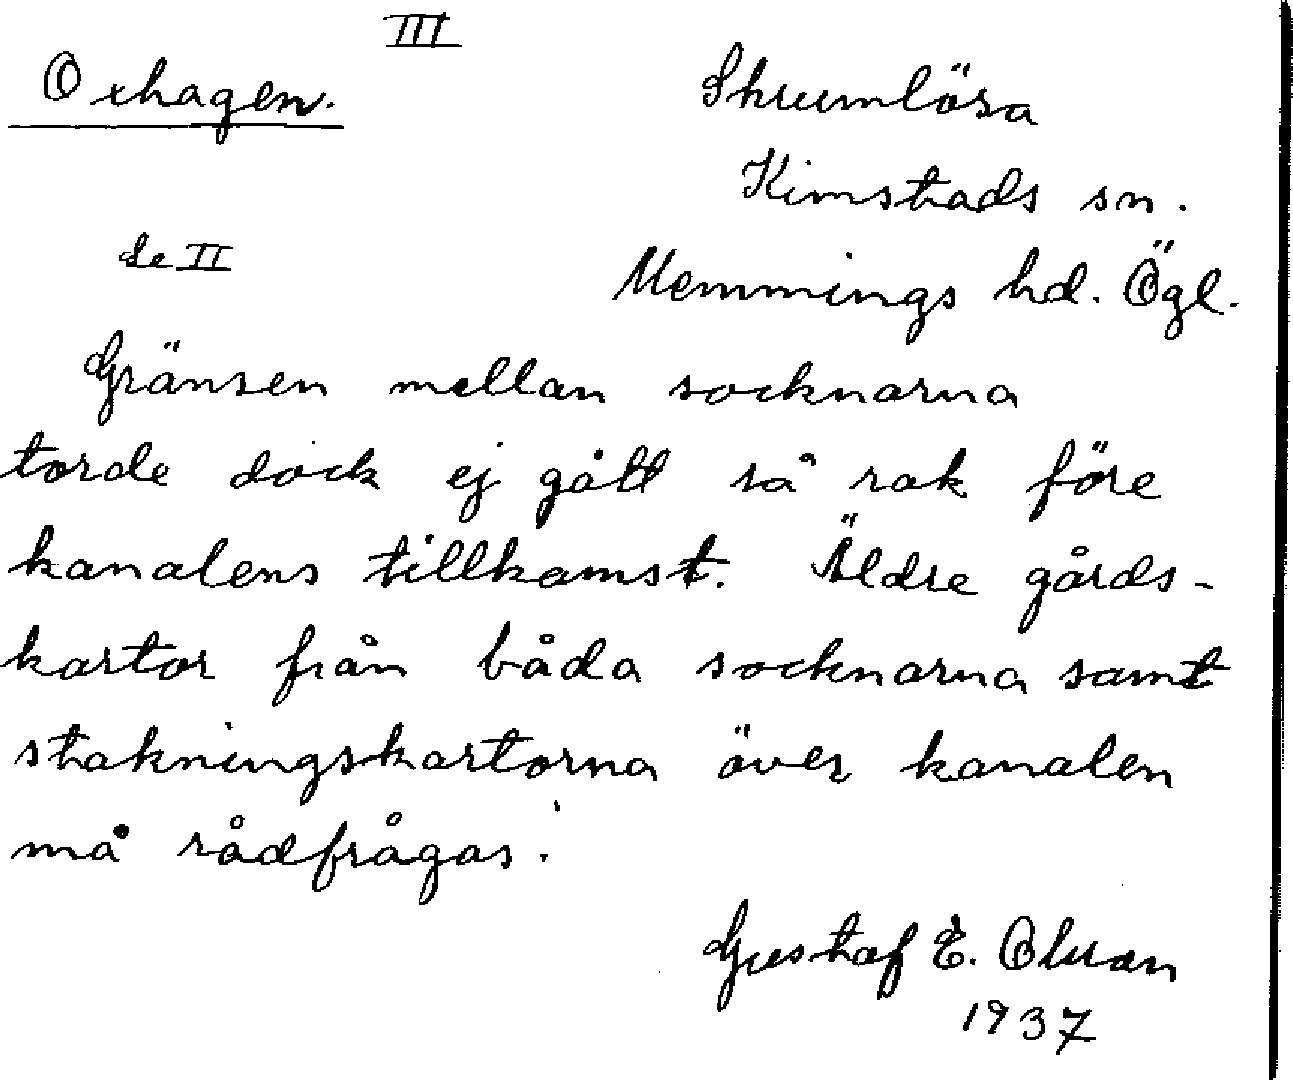 III
Oxhagen.
Skrumlösa
Kimstads sn.
de II
Memmings hd. Ögl.
Gränsen mellan socknarna
torde dock ej gått så rak före
kanalens tillkomst. Äldre gårds-
kartor från båda socknarna samt
stakningskartorna över kanalen
må rådfrågas.
Gustaf E. Olsson
1937